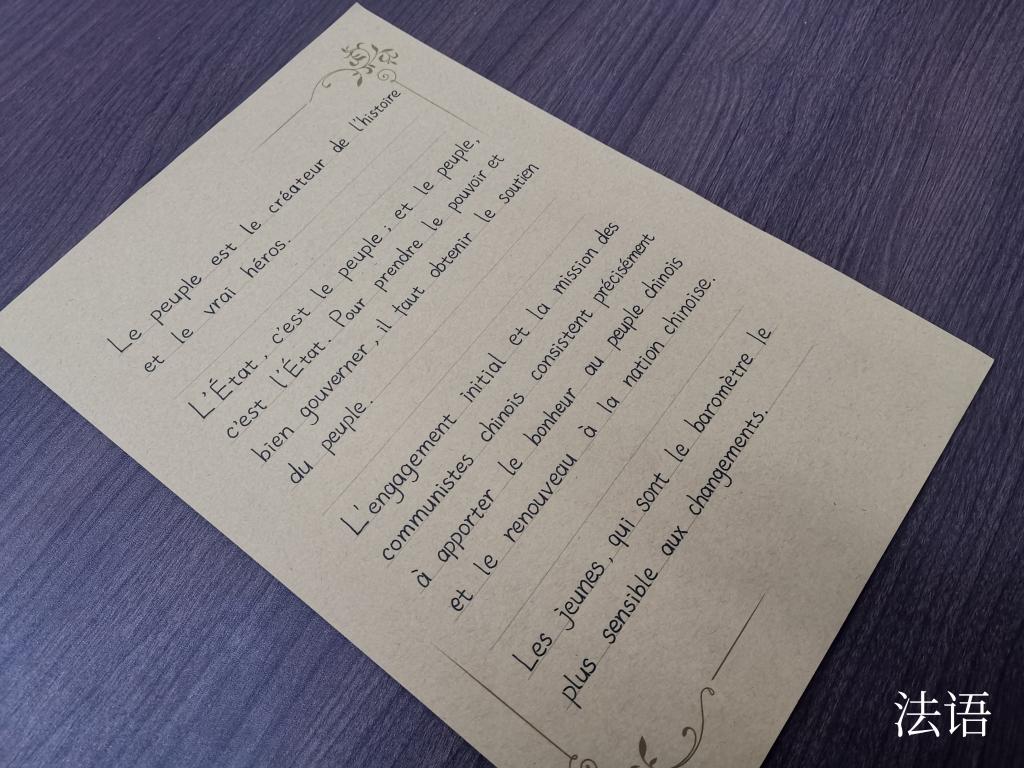 Le peuple est le créateur de l'histoire
et le vrai héros.
L'État, c'est le peuple ; et le peuple,
c'est l'État. Pour prendre le pouvoir et
bien gouverner, il faut obtenir le soutien
du peuple.
L'engagement initial et la mission des
communistes chinois consistent précisément
à apporter le bonheur au peuple chinois
et le renouveau à la nation chinoise.
Les jeunes, qui sont le baromètre le
plus sensible aux changements.
法语